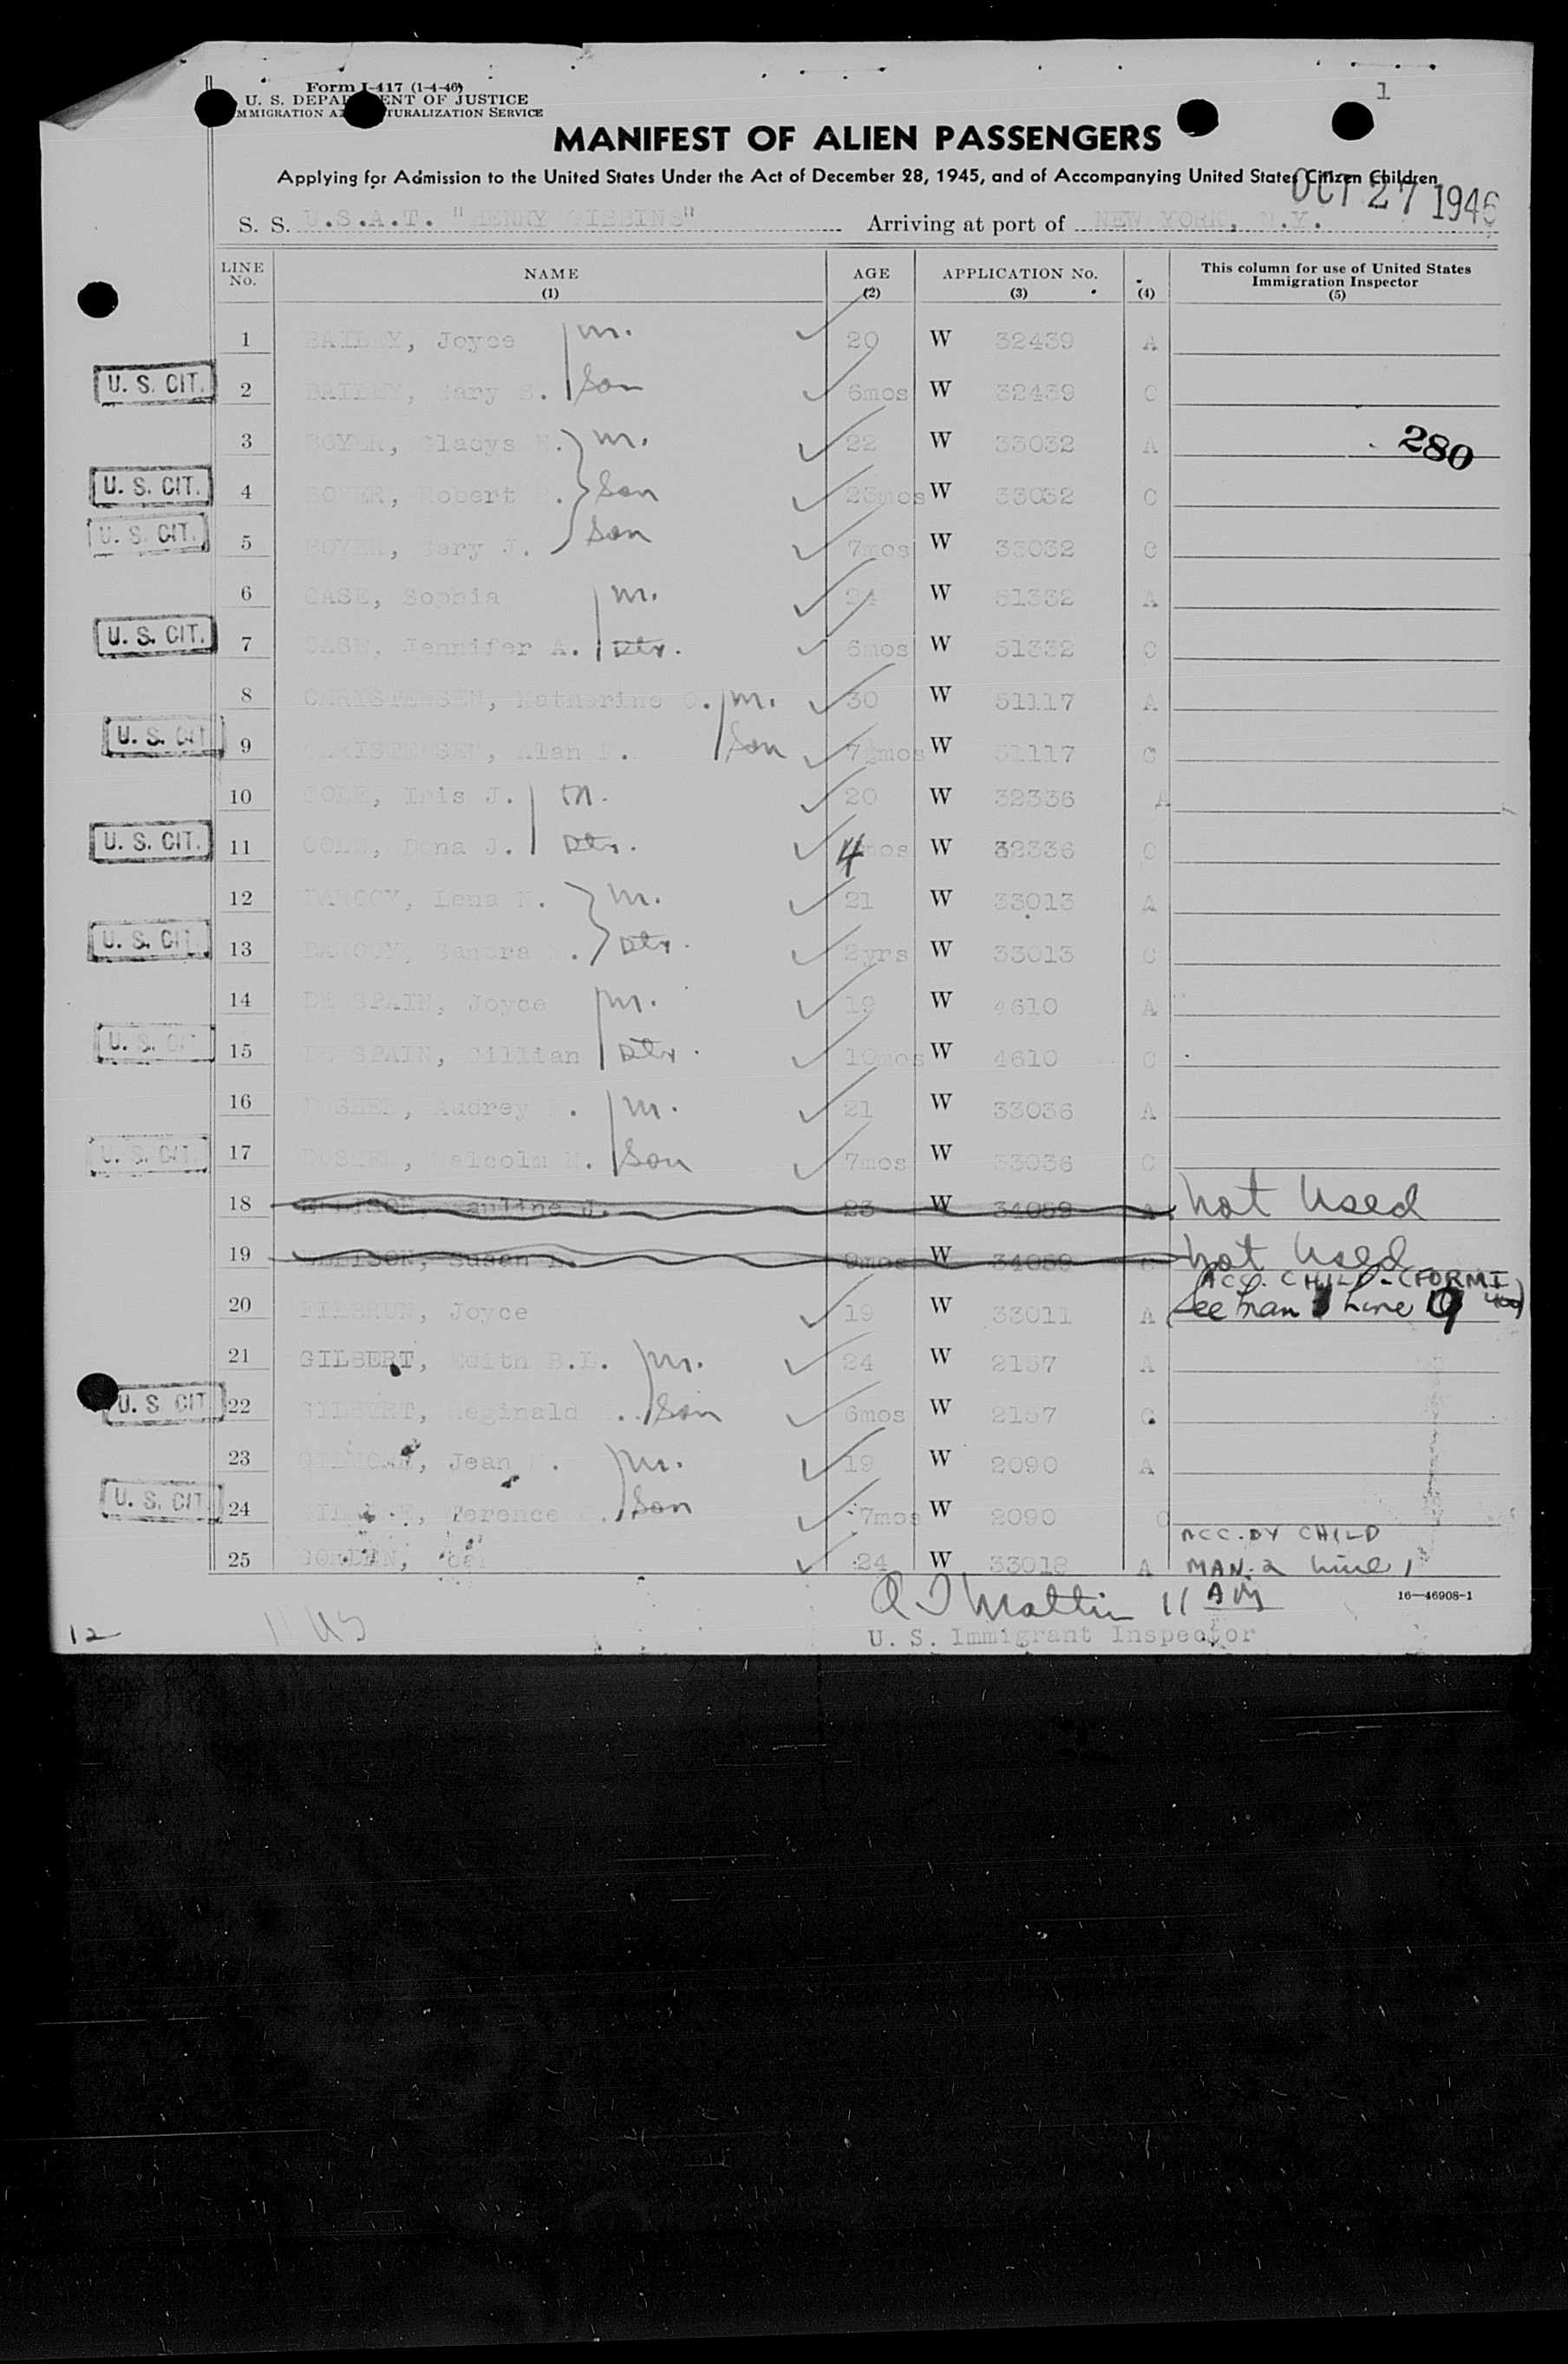 1
Form I-417 (1-4-46)
U. S. DEPARTMENT OF JUSTICE
IMMIGRATION AND NATURALIZATION SERVICE
MANIFEST OF ALIEN PASSENGERS
Applying for Admission to the United States Under the Act of December 28, 1945, and of Accompanying United States Citizen Children
OCT 27 1946
S. S. U.S.A.T. "HENRY GIBBINS" Arriving at port of NEW YORK, N.Y.
LINE No. NAME (1) AGE (2) APPLICATION No. (3) (4) This column for use of United States Immigration Inspector (5)
1 BAILEY, Joyce m. 20 W 32439 A
U. S. CIT. 2 BAILEY, Gary S. Son 6mos W 32439 C
3 BOYER, Gladys m. 22 W 33032 A 280
U. S. CIT. 4 BOYER, Robert Son 23mos W 33032 C
U. S. CIT. 5 BOYER, Gary J. Son 7mos W 33032 C
6 CASE, Sophia m. 24 W 51332 A
U. S. CIT. 7 CASE, Jennifer A. Dtr. 6mos W 51332 C
8 CHRISTENSEN, Katherine O. m. 30 W 51117 A
U. S. CIT 9 CHRISTENSEN, Alan Son 7 mos W 51117 C
10 COLE, Iris J. m. 20 W 32336 A
U. S. CIT. 11 COLE, Dona J. Dtr. 4 mos W 32336 C
12 DARCOY, Lena m. 21 W 33013 A
U. S. CIT. 13 DARCOY, Sandra Dtr. 2yrs W 33013 C
14 DE SPAIN, Joyce m. 19 W 4610 A
U. S. CIT 15 DE SPAIN, Gillian Dtr. 10mos W 4610 C
16 DOSHER, Audrey m. 21 W 33036 A
U. S. CIT. 17 DOSHER, Malcolm Son 7mos W 33036 C
18 ELLISON, Pauline J. 23 W 34059 A not used
19 ELLISON, Susan 9mos W 34059 C not used
ACC. CHILD - (FORM I
20 Joyce 19 W 33011 A See man Line 9
21 GILBERT, Edith B.L. m. 24 W 2157 A
U. S. CIT 22 GILBERT, Reginald Son 6mos W 2157 C
23 Jean m. 19 W 2090 A
U. S. CIT 24 Terence Son 7mos W 2090 C
ACC. BY CHILD
25 GORDEN, 24 W 33018 A MAN. 2 line 1
11 AM
16—46908-1
12 11 US U. S. Immigrant Inspector